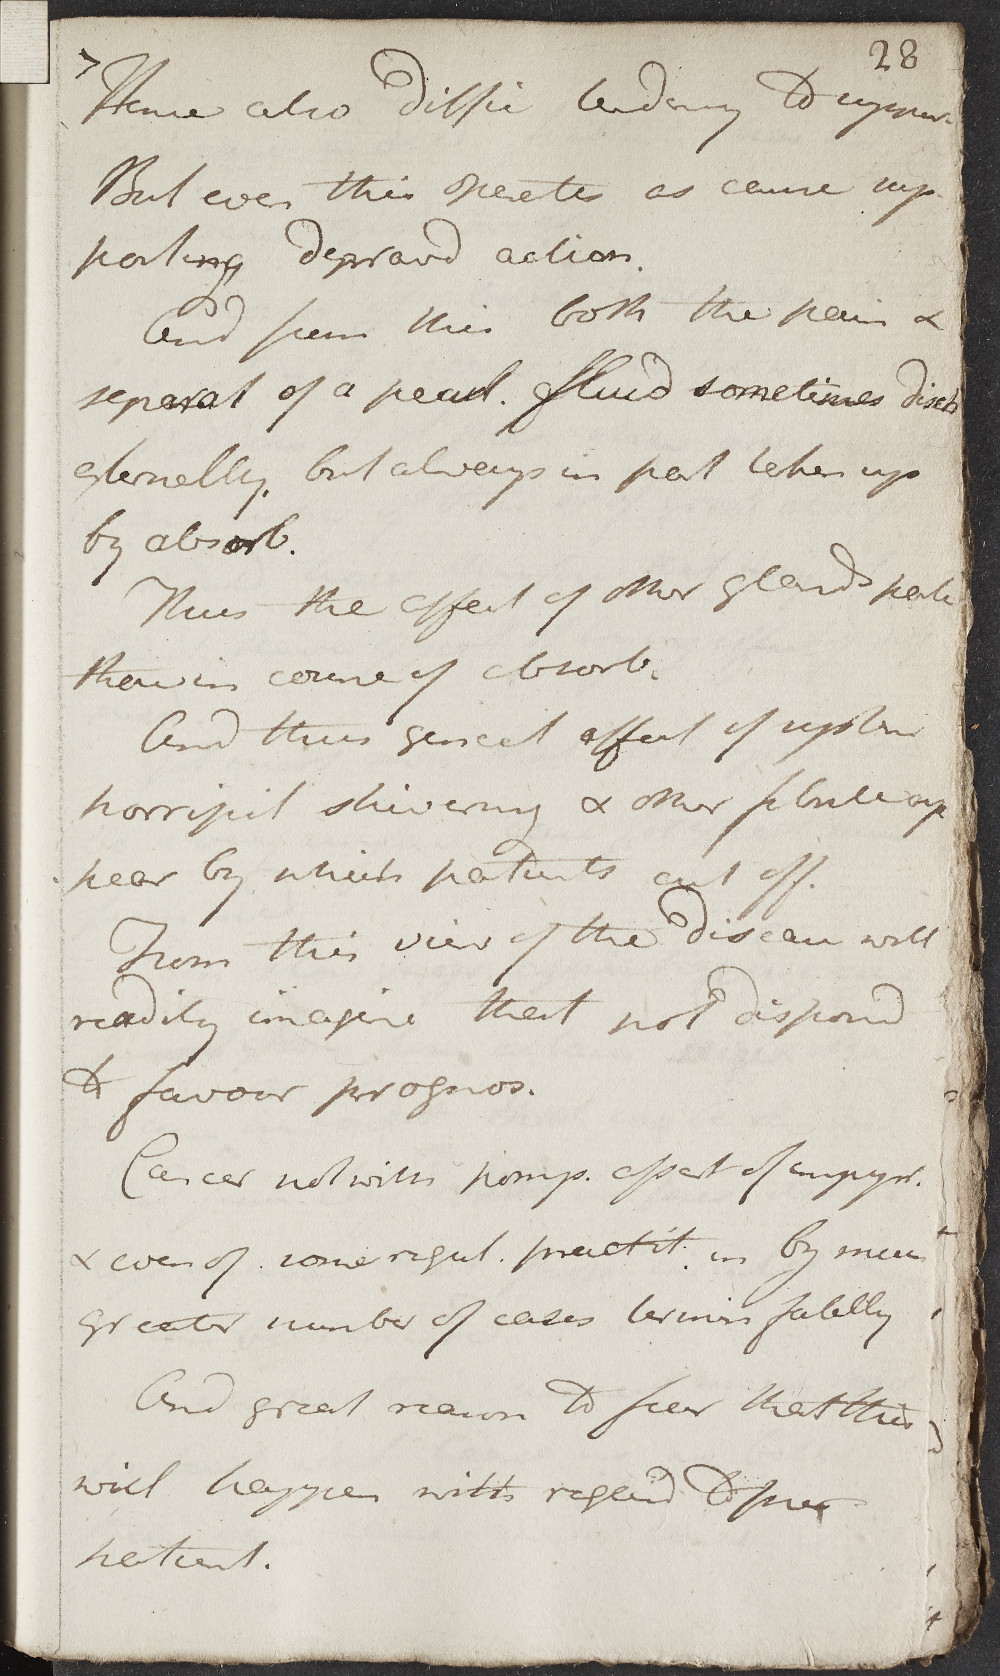 28
Hence also diffic tendency to suppur.
But even this operates as cause sup
porting depravd action.
And from this both the pain &
separat of a pecul. fluid sometimes disch
externally, but always in part taken up
by absorb.
Thus the affect of other glands parti
in course of absorb.
And thus general affect of system
horripil shivering & other febrile ap
pear by which patients cut off.
From this view of the disease will
readily imagine that not disposd
to favour prognos.
Cancer notwith pomp. assert of empyr.
& even of some regul. practit. in by much
greater number of cases termin fatally
And great reason to fear that this
will happen with regard to pres
patient.